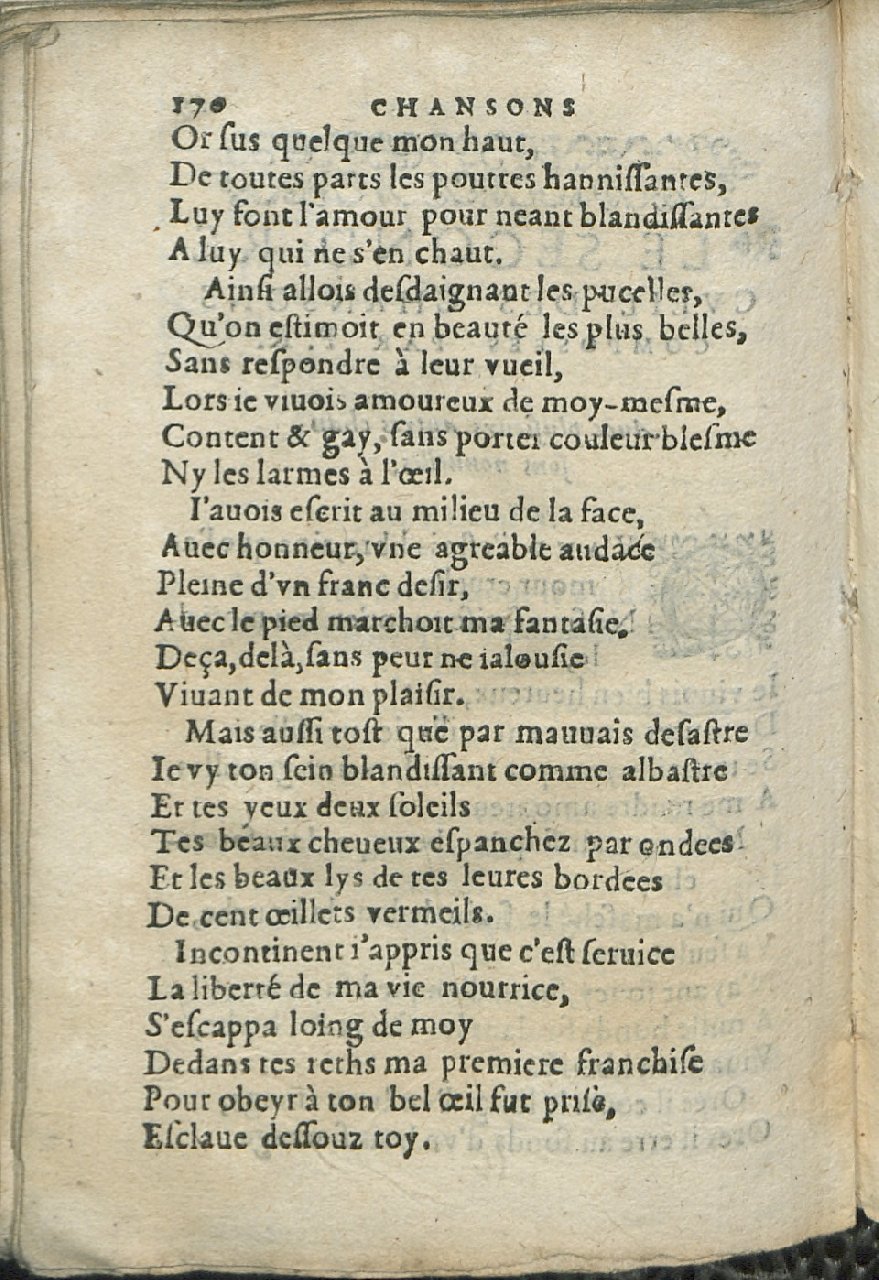 170 CHANSONS
Or ſus quelque mon haut,
De toutes parts les poutres hanniſſantes,
Luy font l'amour pour neant blandiſſantes
A luy qui ne s'en chaut.
Ainſi allois deſdaignant les pucelles,
Qu'on eſtimoit en beauté les plus belles,
Sans reſpondre à leur vueil,
Lors ie viuois amoureux de moy-meſme,
Content & gay, ſans porter couleur bleſme
Ny les larmes à l'œil.
I'auois eſcrit au milieu de la face,
Auec honneur, vne agreable audace
Pleine d'vn franc deſir,
Auec le pied marchoit ma fantaſie.
Deça, delà, ſans peur ne ialouſie
Viuant de mon plaiſir.
Mais auſſi toſt que par mauuais deſaſtre
Ie vy ton ſein blandiſſant comme albaſtre
Et tes yeux deux ſoleils
Tes beaux cheueux eſpanchez par ondees
Et les beaux lys de tes leures bordees
De cent œillets vermeils.
Incontinent i'appris que c'eſt ſeruice
La liberté de ma vie nourrice,
S'eſcappa loing de moy
Dedans tes reths ma premiere franchiſe
Pour obeyr à ton bel œil fut priſe,
Eſclaue deſſouz toy.